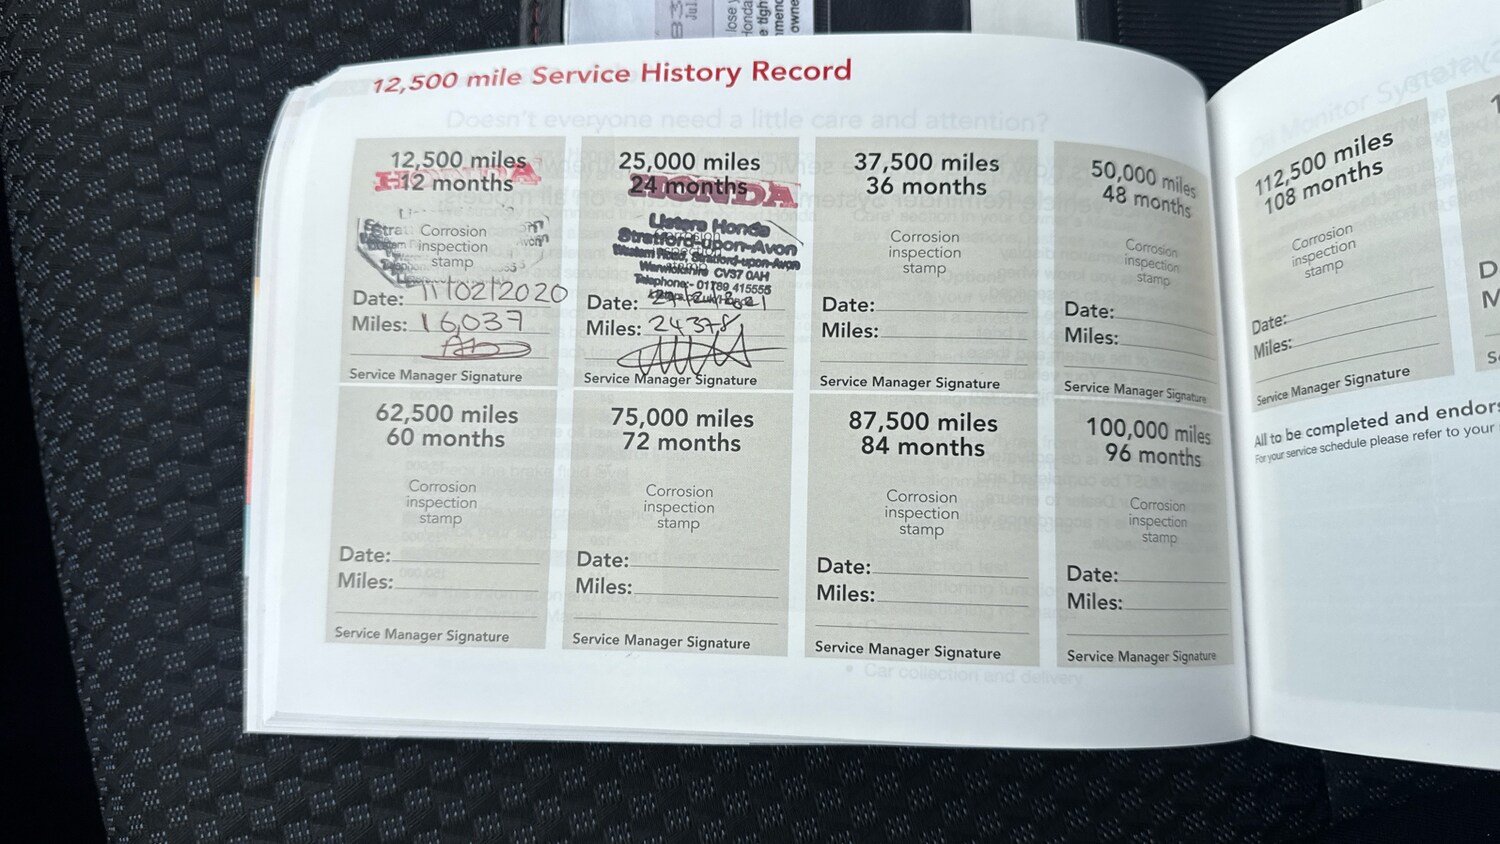 12,500 mile Service History Record
Doesn't everyone need a little care and attention?
12,500 miles
12 months
HONDA
Corrosion
inspection
stamp
Date: 11/02/2020
Miles: 16,037
Service Manager Signature
25,000 miles
24 months
HONDA
Listers Honda
Stratford-upon-Avon
Western Road, Stratford-upon-Avon
Warwickshire CV37 0AH
Telephone:- 01789 415555
Date:
Miles: 24378
Service Manager Signature
37,500 miles
36 months
Corrosion
inspection
stamp
Date:
Miles:
Service Manager Signature
50,000 miles
48 months
Corrosion
inspection
stamp
Date:
Miles:
Service Manager Signature
62,500 miles
60 months
Corrosion
inspection
stamp
Date:
Miles:
Service Manager Signature
75,000 miles
72 months
Corrosion
inspection
stamp
Date:
Miles:
Service Manager Signature
87,500 miles
84 months
Corrosion
inspection
stamp
Date:
Miles:
Service Manager Signature
100,000 miles
96 months
Corrosion
inspection
stamp
Date:
Miles:
Service Manager Signature
• Car collection and delivery
112,500 miles
108 months
Corrosion
inspection
stamp
Date:
Miles:
Service Manager Signature
All to be completed and
For your service schedule please refer to your